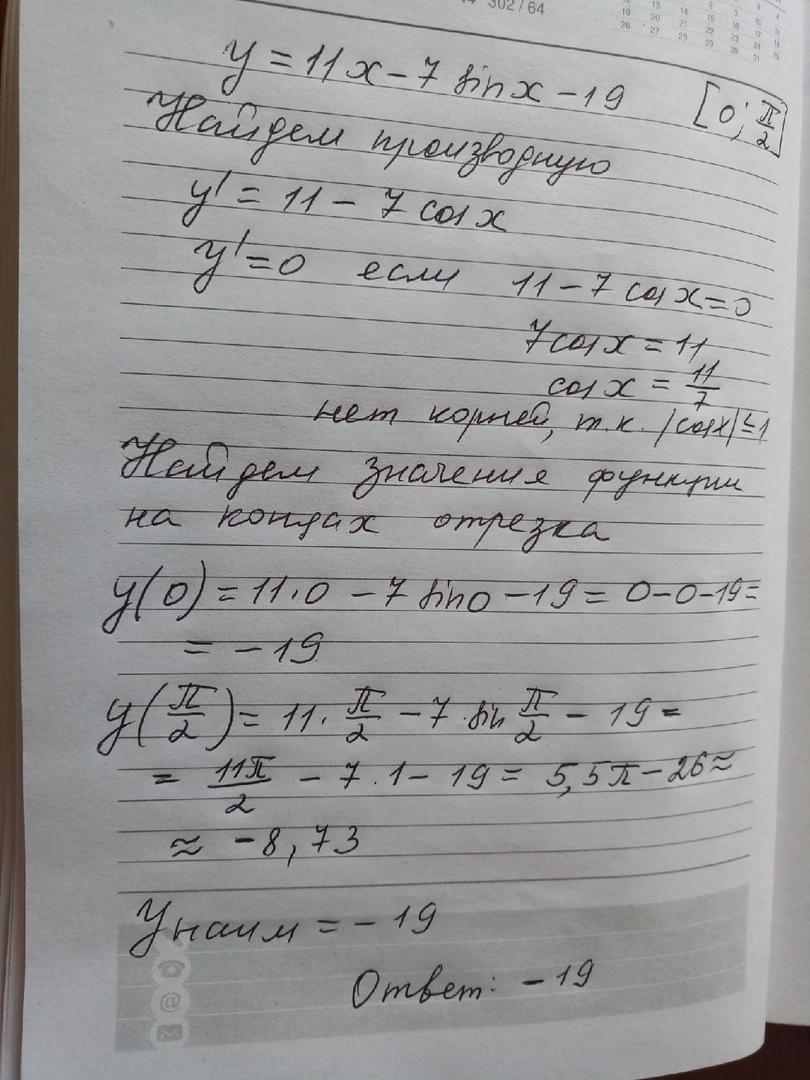 302 / 64
y = 11x - 7 sin x - 19 [0; π/2]
Найдем производную
y' = 11 - 7 cos x
y' = 0 если 11 - 7 cos x = 0
7 cos x = 11
cos x = 11/7
нет корней, т.к. |cos x| ≤ 1
Найдем значения функции
на концах отрезка
y(0) = 11·0 - 7 sin 0 - 19 = 0-0-19 =
= -19
y(π/2) = 11·π/2 - 7·sin π/2 - 19 =
= 11π/2 - 7·1 - 19 = 5,5π - 26 ≈
≈ -8,73
Yнаим = -19
Ответ: -19